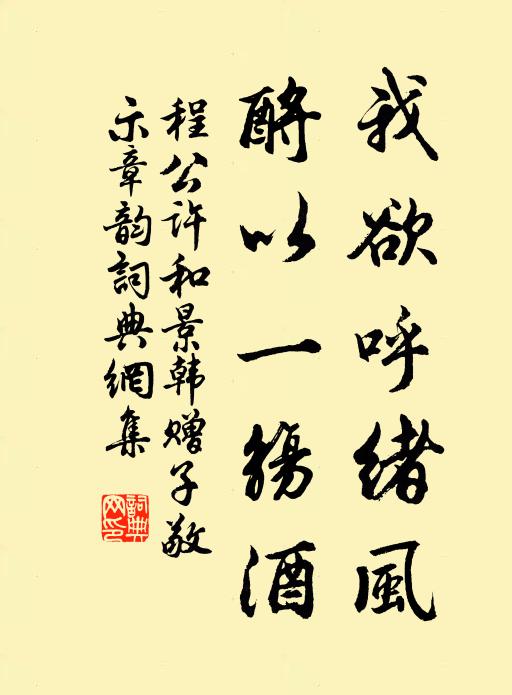 我欲呼緒風
酹以一觴酒
程公许和景韩赠子敬
示章韵詞典網集
詞典
网印